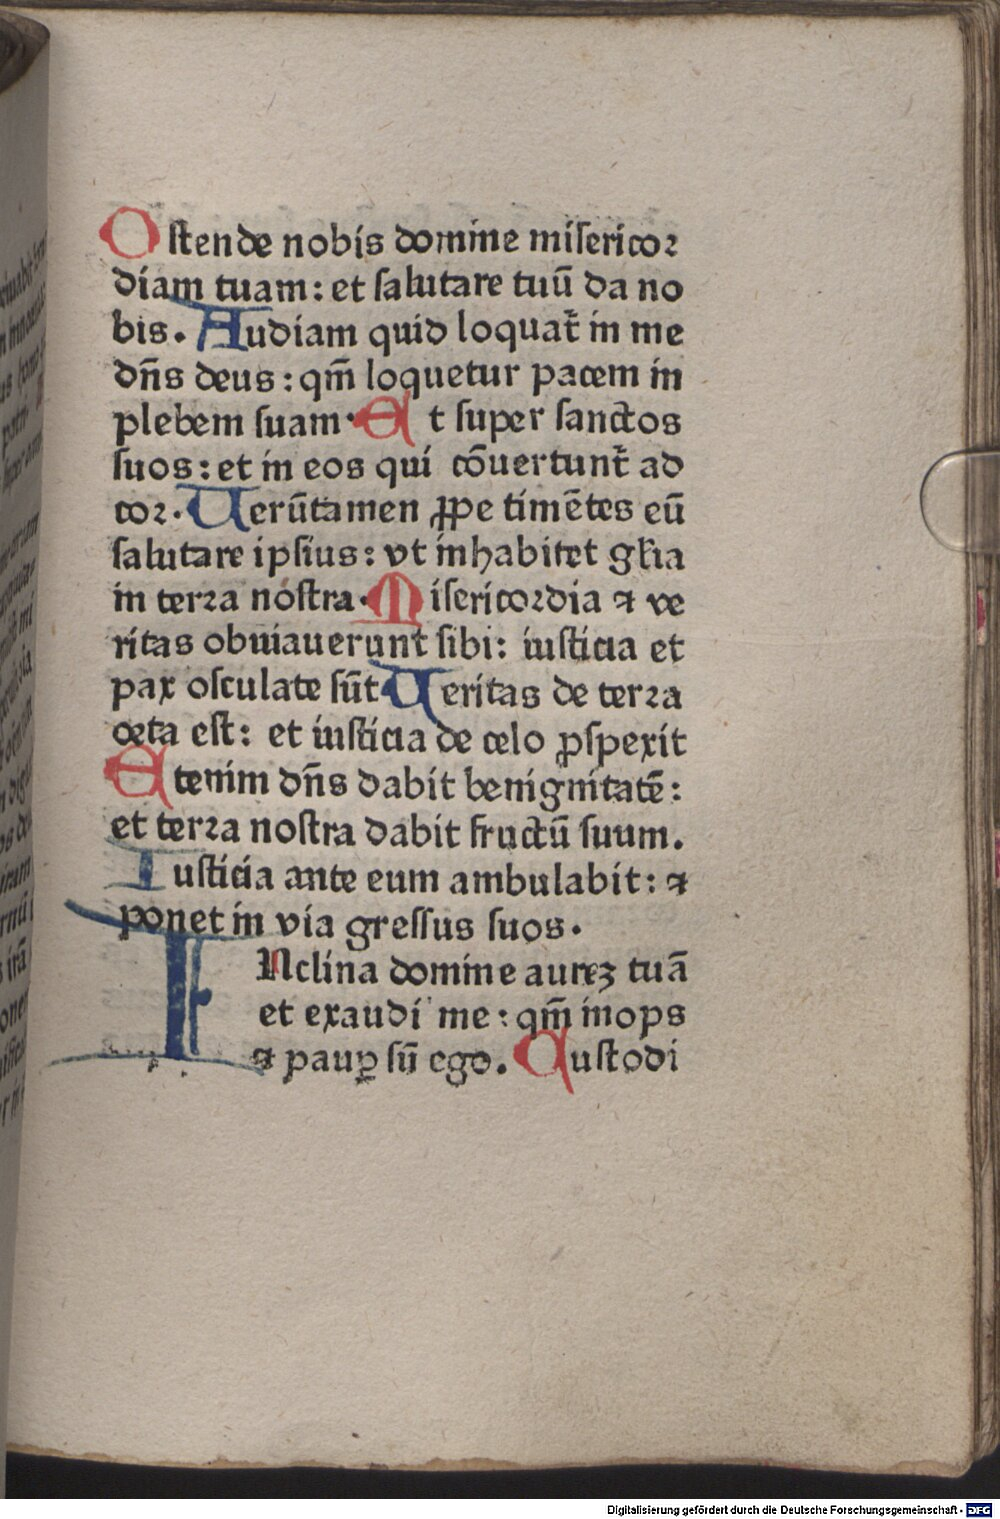 Ostende nobis domine misericor
diam tuam: et salutare tuū da no
bis. Audiam quid loquat᷑ in me
dn̄s deus: qm̄ loquetur pacem in
plebem suam. Et super sanctos
suos: et in eos qui cōuertunt᷑ ad
cor. Uerūtamen ꝓpe timētes eū
salutare ipsius: vt inhabitet gl̄ia
in terra nostra. Misericordia ⁊ ve
ritas obuiauerunt sibi: iusticia et
pax osculate sūt Ueritas de terra
orta est: et iusticia de celo ꝓspexit
Etenim dn̄s dabit benignitatē:
et terra nostra dabit fructū suum.
Iusticia ante eum ambulabit: ⁊
ponet in via gressus suos.
INclina domine aureꝫ tuā
et exaudi me: qm̄ inops
⁊ pauꝑ sū ego. Custodi
Digitalisierung gefördert durch die Deutsche Forschungsgemeinschaft - DFG